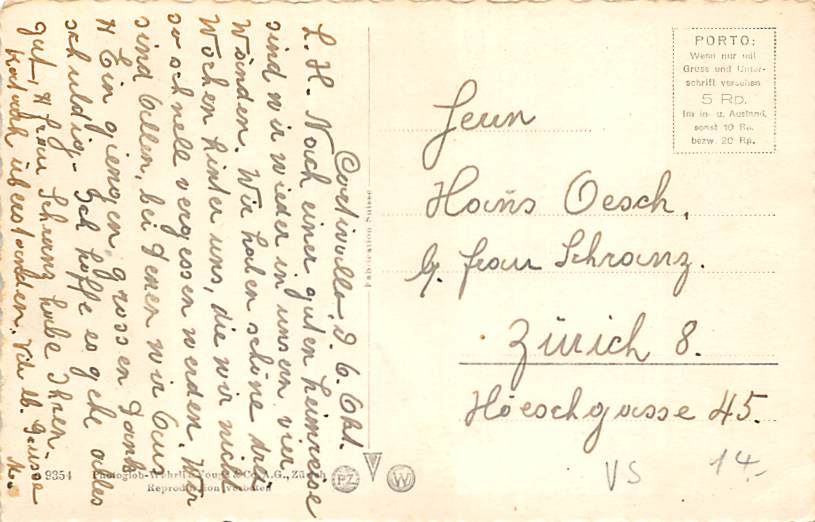 Cortivallo, d. 6. Okt.
L. H. Nach einer guten Heimreise
sind wir wieder in unsern vier
Wänden. Wir haben schöne drei
Wochen hinter uns, die wir nicht
so schnell vergessen werden. Wir
sind allen, bei denen wir aus
& Ein giengen, grossen Dank
schuldig. Ich hoffe es gehe alles
gut, & Frau Schranz habe Ihren
überstanden. Grüsse
Fabrication Suisse
PORTO:
Wenn nur mit
Gruss und Unter-
schrift versehen
5 Rp.
im in- u. Ausland,
sonst 10 Rp.
bezw. 20 Rp.
Herrn
Hans Oesch,
b. Frau Schranz.
Zürich 8.
Höschgasse 45.
VS 14.-
9354 Photoglob-Wehrli & Vouga & Co. A.G., Zürich
Reproduction verboten
PZ W